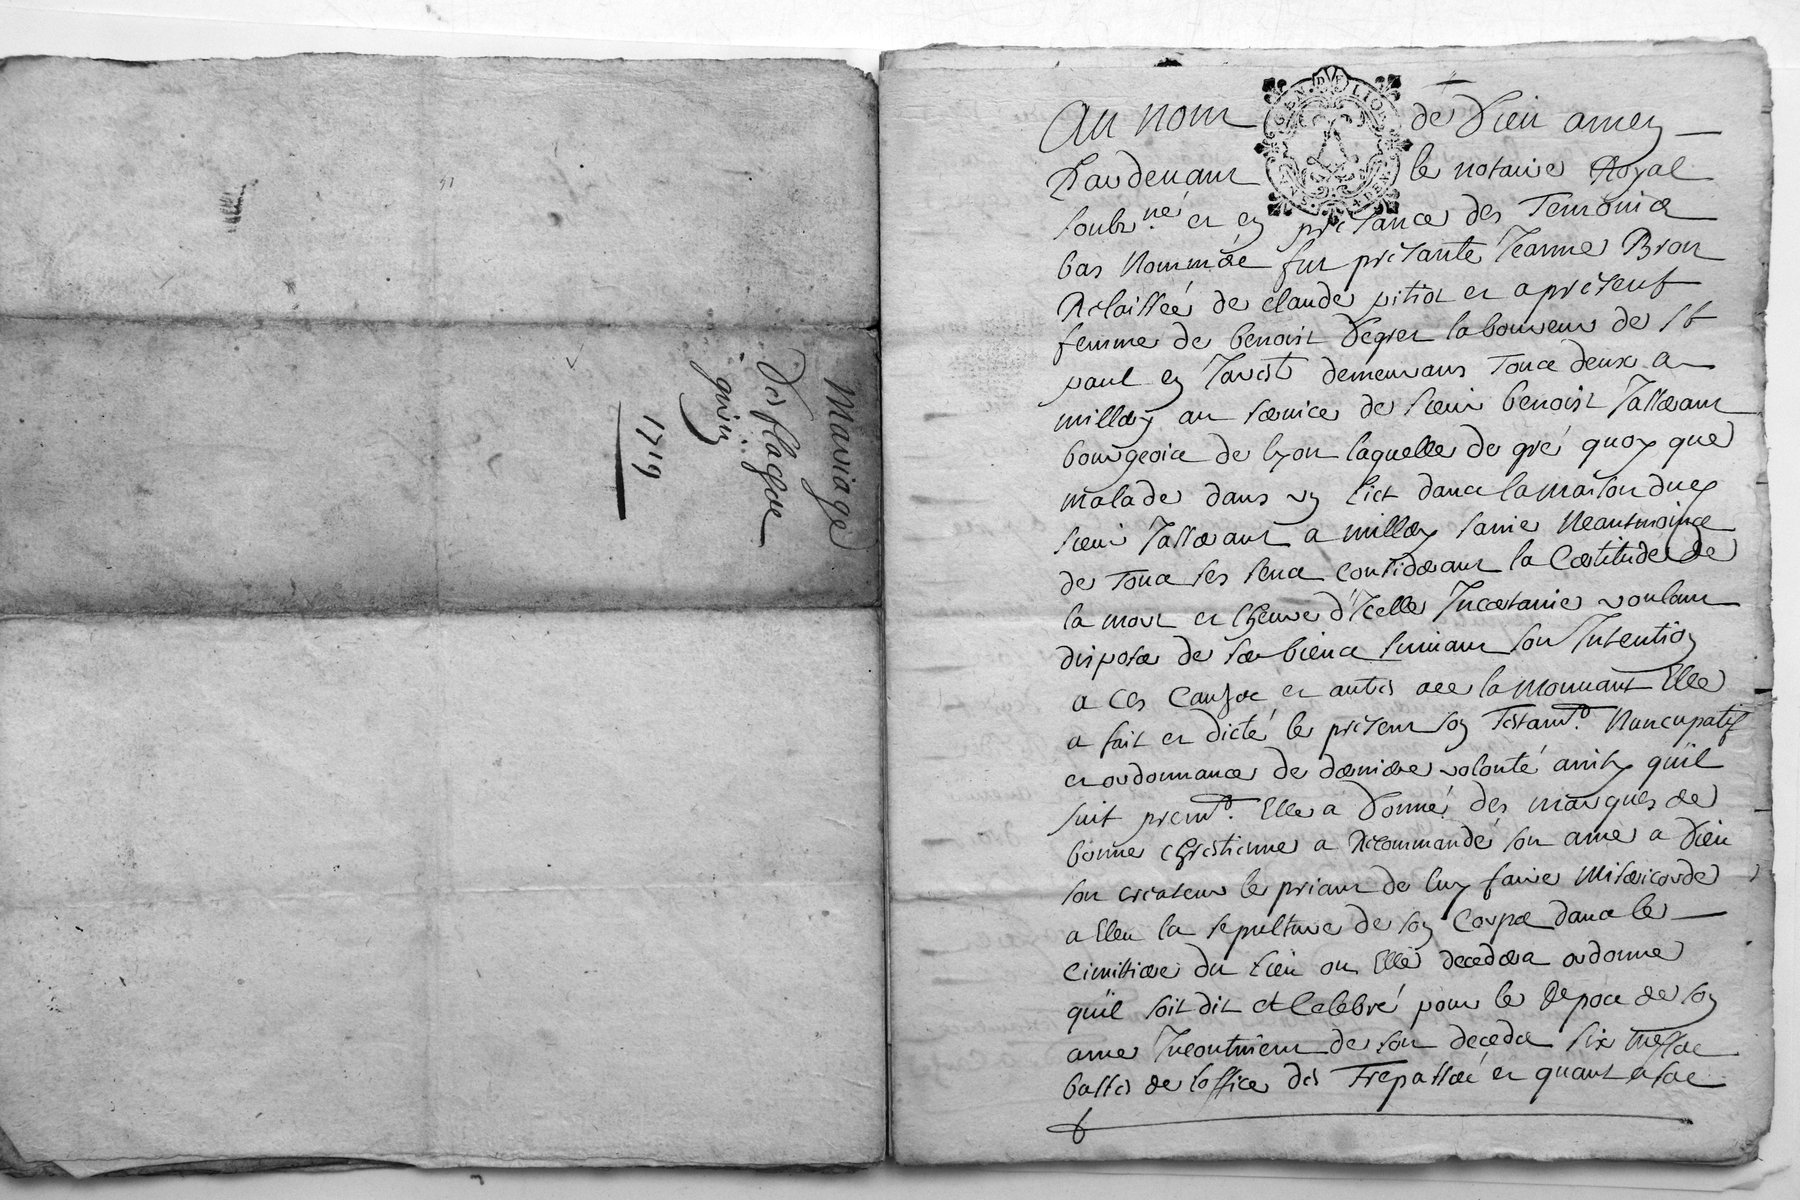 Mariage
des flaches
guin
1719
GEN DE LION
Au nom de Dieu amen
Pardevant le notaire Royal
soubz.né et en présance des Temoins
bas Nommés fut présante Jeanne Bron
Relaissée de claude pitiot et a présent
femme de benoist Degret laboureur de St
paul en Jarest demeurans Tous deux a
millery au service de sieur benoist
bourgeois de lyon laquelle de gré quoy que
malade dans un lict dans la maison dud
sieur a millery saine Neantmoings
de Tous ses sens considerant la Certitude de
la mort et lheure d'Icelle Incertaine voulant
disposer de ses biens suivant son Intention
a ces Causes et autres ace la Mouvant Elle
a fait et dicté le présent son Testamt. Nuncupatif
et ordonnance de dernière volonté ainsy qu'il
suit premt. Elle a Donné des marques de
bonne chrestienne a Recommandé son ame a Dieu
son createur le priant de luy faire Misericorde
a Eleu la sepulture de son Corps dans le
Cimitiere du Lieu ou Elle decedera ordonne
qu'il soit dit et Celebré pour le Repos de son
ame Incontinent de son deceds six Messes
basses de loffice des Trepassés et quant a ses